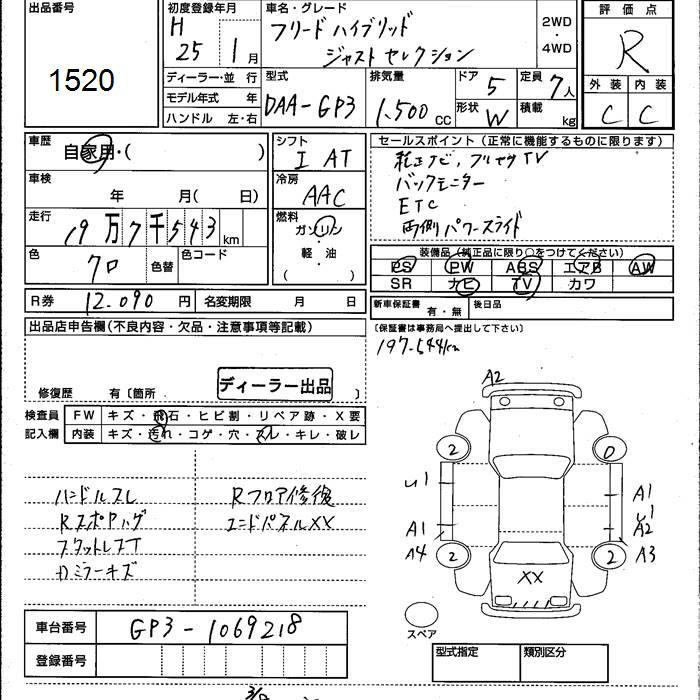 出品番号
1520
初度登録年月
H 25 1月
車名・グレード
フリードハイブリッド
ジャストセレクション
2WD
・
4WD
評価点
R
外装 内装
C C
ディーラー・並行
モデル年式 年
ハンドル 左・右
型式
DAA-GP3
排気量
1.500 CC
ドア 5
形状 W
定員 7人
積載 kg
車歴
自家用・( )
車検
年 月( 日)
走行
19万7千543 km
色
クロ 色替
色コード
シフト
I AT
冷房
AAC
燃料
ガソリン
・
軽・油
( )
セールスポイント(正常に機能するものに限ります)
純正ナビ,フルセグTV
バックモニター
ETC
両側パワースライド
装備品(純正品に限り○をつけてください)
PS PW ABS エアB AW
SR ナビ TV カワ
R券 12.090 円 名変期限 月 日
新車保証書 有・無 後日品
(保証書は事務局へ提出して下さい)
197-544km
出品店申告欄(不良内容・欠品・注意事項等記載)
ディーラー出品
修復歴 有〔箇所 〕
検査員
記入欄
FW キズ・飛石・ヒビ割・リペア跡・X要
内装 キズ・汚れ・コゲ・穴・スレ・キレ・破レ
ハンドルスレ
Rスポイラ
スタットレスT
ミラーキズ
Rフロア修復
エンドパネルXX
A2
2 0
A1
A1 A2
A4 2 2 A3
XX
スペア
車台番号 GP3-1069218
登録番号
型式指定 類別区分